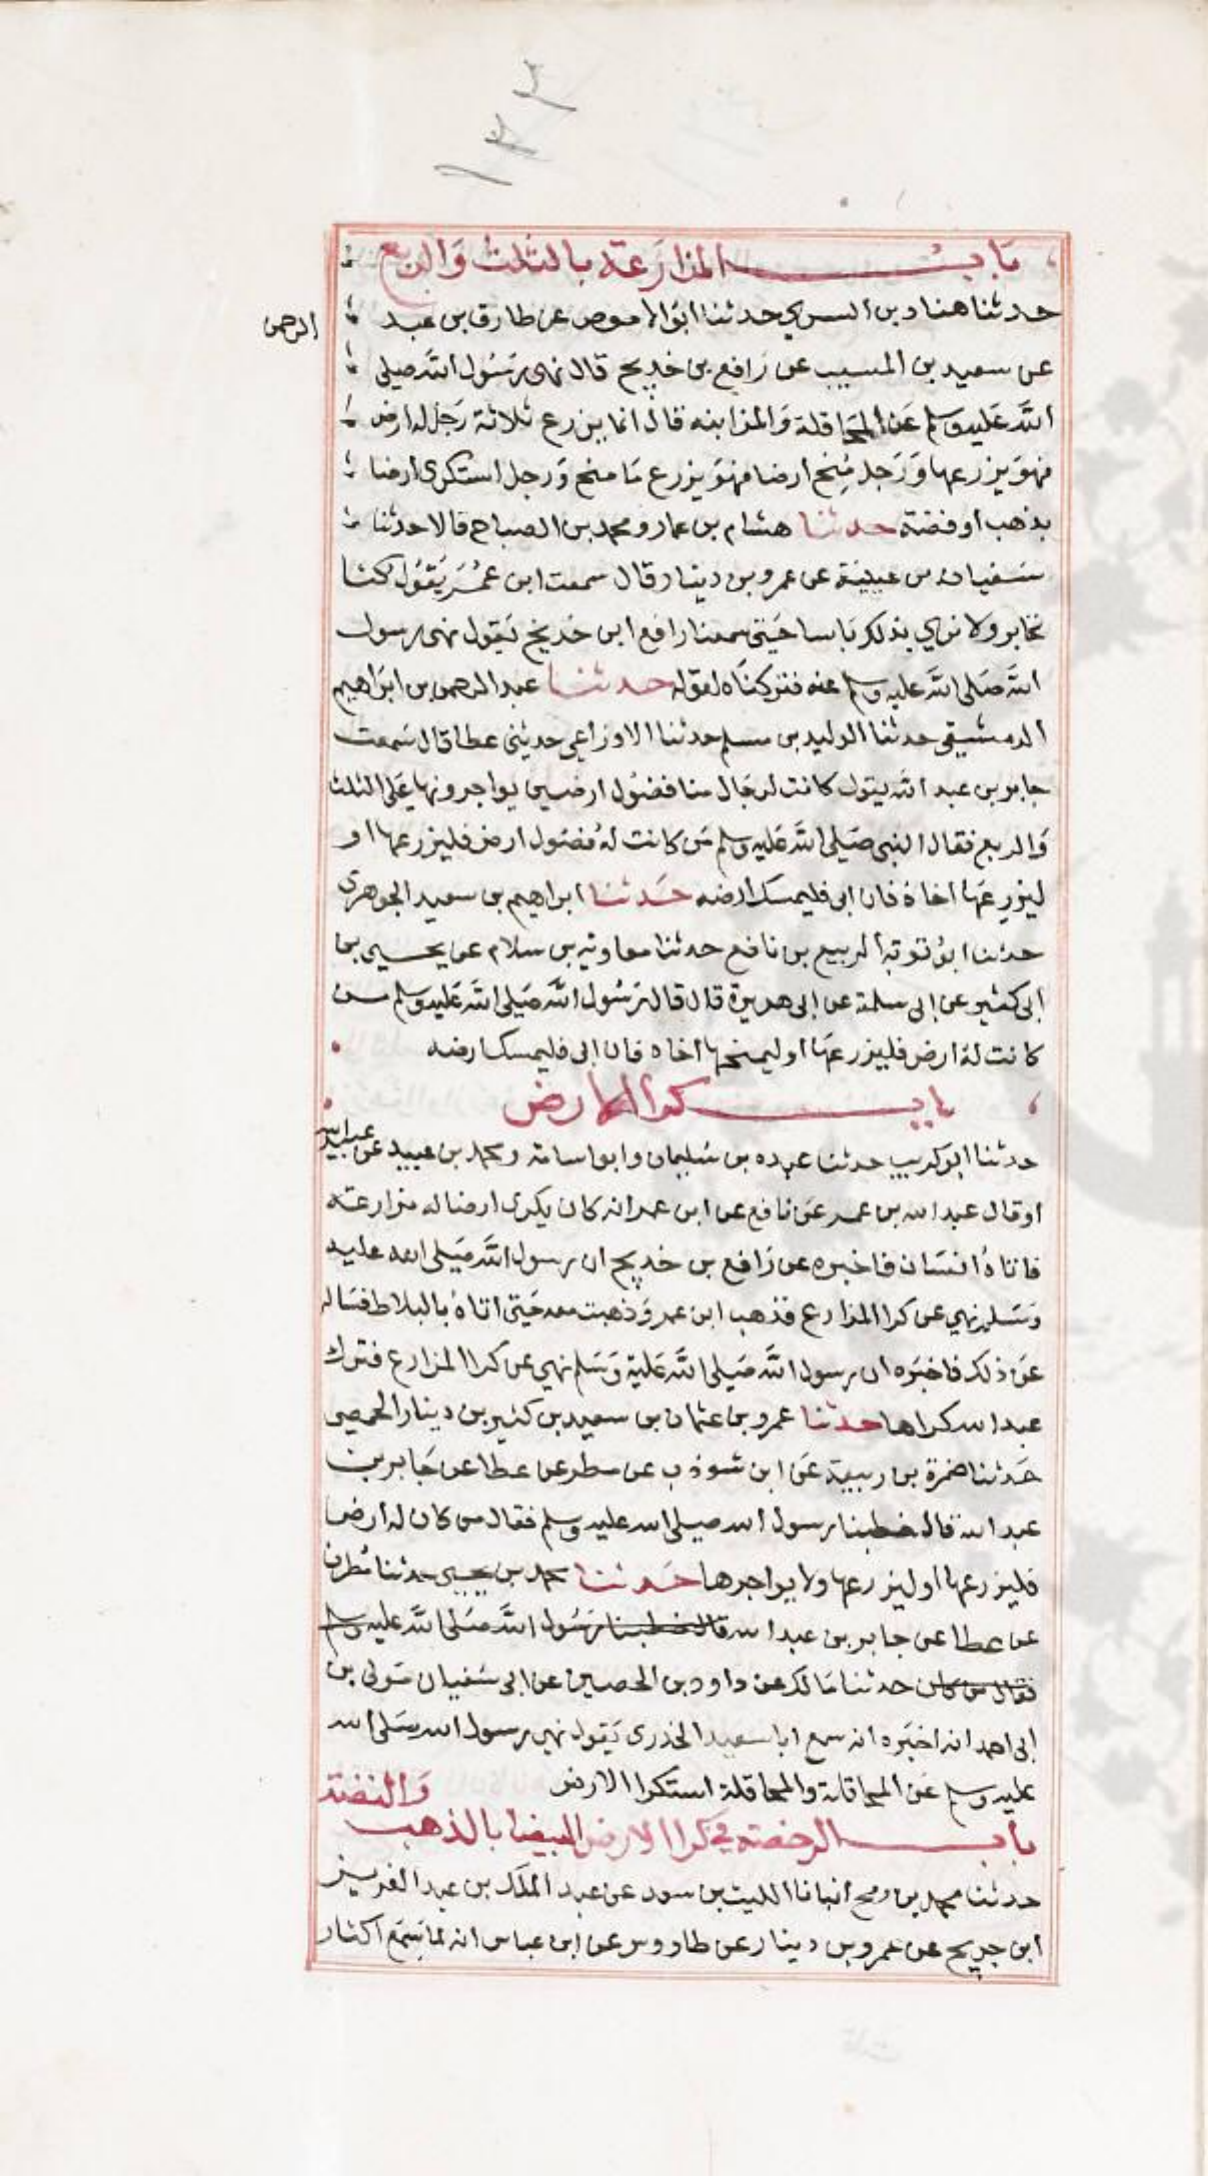 ١٢٢
باب المزارعة بالثلث والربع
حدثنا هناد بن السري حدثنا ابو الاحوص عن طارق بن عبد
الرحمن
عن سعيد بن المسيب عن رافع بن خديج قال نهى رسول الله صلى
الله عليه وسلم عن المحاقلة والمزابنه قال انما يزرع ثلاثة رجل له ارض
فهو يزرعها ورجل منح ارضا فهو يزرع ما منح ورجل استكرى ارضا
بذهب او فضة حدثنا هشام بن عمار ومحمد بن الصباح قالا حدثنا
سفيان بن عيينة عن عمرو بن دينار قال سمعت ابن عمر يقول كنا
نخابر ولا نري بذلك باسا حتى سمعنا رافع ابن خديج يقول نهى رسول
الله صلى الله عليه وسلم عنه فتركناه لقوله حدثنا عبد الرحمن بن ابراهيم
الدمشيقي حدثنا الوليد بن مسلم حدثنا الاوزاعي حديثني عطا قال سمعت
جابر بن عبد الله يقول كانت لرجال منا فضول ارضين يواجرونها على الثلث
والربع فقال النبى صلى الله عليه وسلم من كانت له فضول ارض فليزرعها او
ليزرعها اخاه فان ابى فليمسك ارضه حدثنا ابراهيم بن سعيد الجوهرى
حدثنا ابو توبة الربيع بن نافع حدثنا معاوية بن سلام عن يحيى بن
ابى كثير عن ابى سلمة عن ابى هريرة قال قال رسول الله صلى الله عليه وسلم من
كانت له ارض فليزرعها او ليمنحها اخاه فان ابى فليمسك ارضه
باب كرا الارض
حدثنا ابو كريب حدثنا عبده بن سليمان وابو اسامة ومحمد بن عبيد عن عبيد الله
او قال عبد الله بن عمر عن نافع عن ابن عمر انه كان يكرى ارضا له مزارعة
فاتاه انسان فاخبره عن رافع بن خديج ان رسول الله صلى الله عليه
وسلم نهي عن كرا المزارع فذهب ابن عمر وذهبت معه حتى اتاه بالبلاط فساله
عن ذلك فاخبره ان رسول الله صلى الله عليه وسلم نهي عن كرا المزارع فترك
عبد الله كراها حدثنا عمرو بن عثمان بن سعيد بن كثير بن دينار الحمصى
حدثنا ضمرة بن ربيعة عن ابن شوذب عن مطر عن عطا عن جابر بن
عبد الله قال خطبنا رسول الله صلى الله عليه وسلم فقال من كان له ارض
فليزرعها او ليزرعها ولا يواجرها حدثنا محمد بن يحيى حدثنا مطرف
عن عطا عن جابر بن عبد الله قال خطبنا رسول الله صلى الله عليه وسلم
فقال من كان حدثنا مالك عن داود بن الحصين عن ابى سفيان مولى بن
ابى احمد انه اخبره انه سمع ابا سعيد الخدرى يقول نهى رسول الله صلى الله
عليه وسلم عن المحاقلة والمحاقلة استكرا الارض
باب الرخصة في كرا الارض البيضا بالذهب والفضة
حدثنا محمد بن رمح انبانا الليث بن سعد عن عبد الملك بن عبد العزيز
ابن جريج عن عمرو بن دينار عن طاووس عن ابن عباس انه لما سمع اكثار